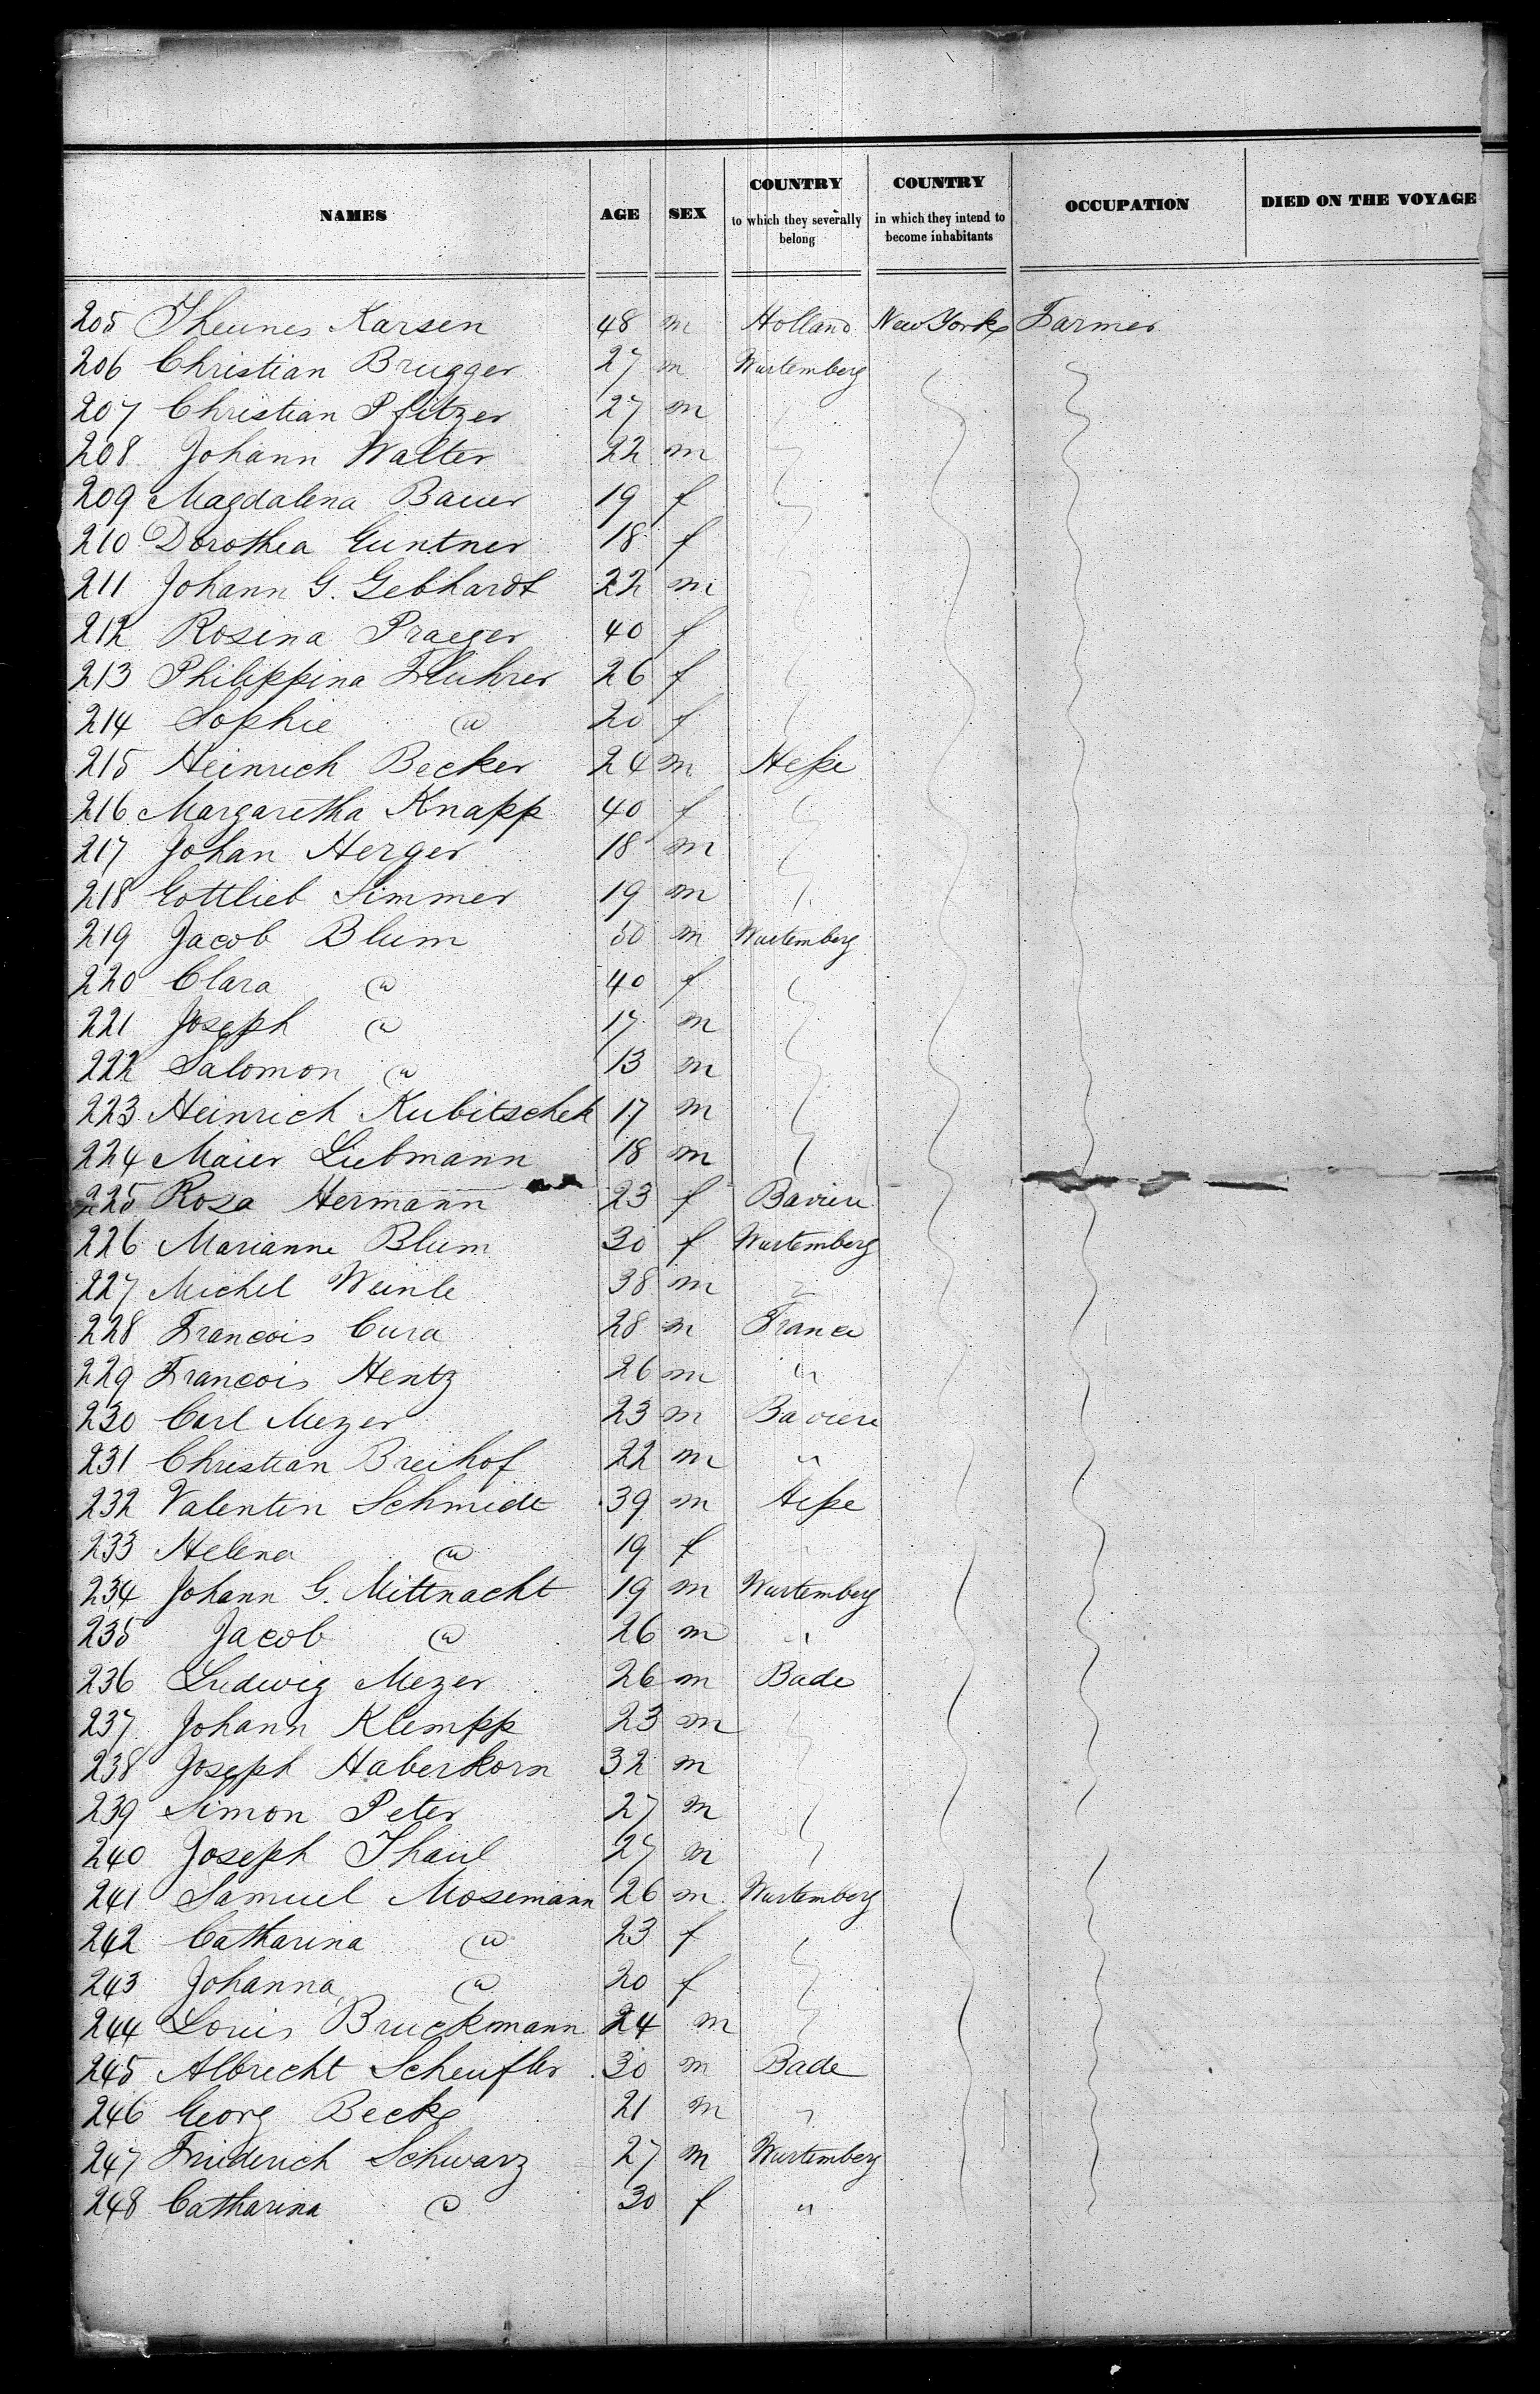 NAMES AGE SEX COUNTRY to which they severally belong COUNTRY in which they intend to become inhabitants OCCUPATION DIED ON THE VOYAGE
205 Theunes Karsen 48 m Holland New York Farmer
206 Christian Brugger 27 m Wurtemberg
207 Christian Pfitzer 27 m
208 Johann Walter 22 m
209 Magdalena Bauer 19 f
210 Dorothea Guntner 18 f
211 Johann G. Gebhardt 22 m
212 Rosina Praeger 40 f
213 Philippina Fluhrer 26 f
214 Sophie " 20 f
215 Heinrich Becker 24 m Hesse
216 Margaretha Knapp 40 f
217 Johan Herger 18 m
218 Gottlieb Simmer 19 m
219 Jacob Blum 50 m Wurtemberg
220 Clara " 40 f
221 Joseph " 17 m
222 Salomon " 13 m
223 Heinrich Kubitschek 17 m
224 Maier Liebmann 18 m
225 Rosa Hermann 23 f Baviere
226 Marianne Blum 30 f Wurtemberg
227 Michel Weinle 38 m "
228 Francois Cura 28 m France
229 Francois Hentz 26 m "
230 Carl Mezer 23 m Baviere
231 Christian Breihof 22 m "
232 Valentin Schmidt 39 m Hesse
233 Helena " 19 f
234 Johann G. Mittnacht 19 m Wurtemberg
235 Jacob " 26 m "
236 Ludwig Mezer 26 m Bade
237 Johann Klempp 23 m
238 Joseph Haberkorn 32 m
239 Simon Peter 27 m
240 Joseph Thaul 27 m
241 Samuel Mosemann 26 m Wurtemberg
242 Catharina " 23 f
243 Johanna " 20 f
244 Louis Bruckmann 24 m
245 Albrecht Scheufler 30 m Bade
246 Georg Beck 21 m "
247 Friederich Schwarz 27 m Wurtemberg
248 Catharina " 30 f "